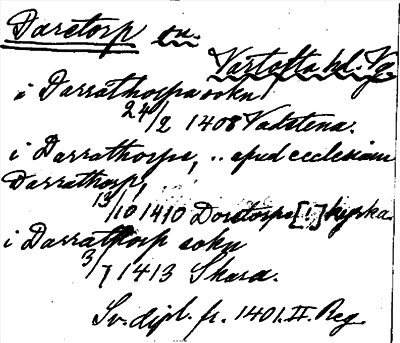 Daretorp sn.
Vartofta hd. Vg
i Darrathorpa sokn
24/2 1408 Vadstena.
i Darrathorpe, .. apud ecclesiam
Darrathorp,
13/10 1410 Dorotorps [!] kyrka.
i Darrathorp sokn
3/7 1413 Skara.
Sv. dipl. fr. 1401. II. Reg.